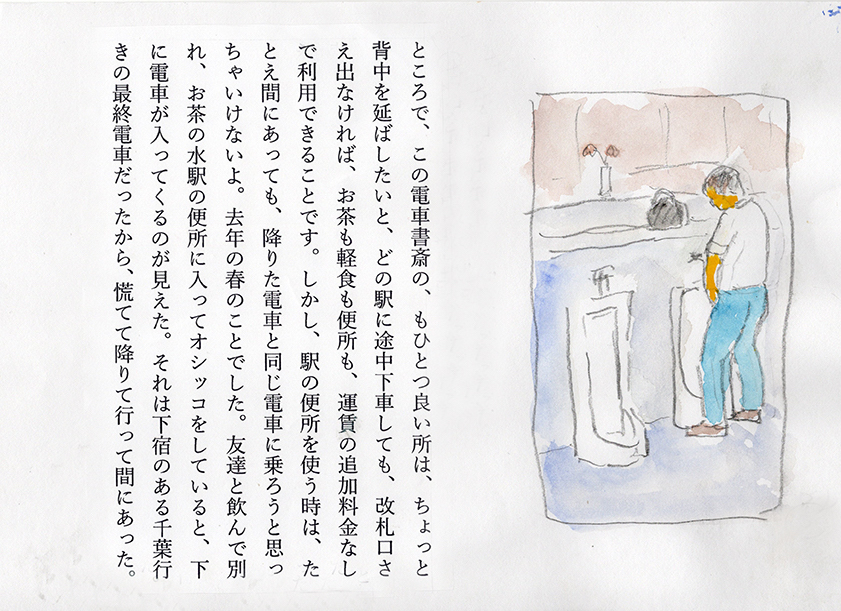 ところで、この電車書斎の、もひとつ良い所は、ちょっと
背中を延ばしたいと、どの駅に途中下車しても、改札口さ
え出なければ、お茶も軽食も便所も、運賃の追加料金なし
で利用できることです。しかし、駅の便所を使う時は、た
とえ間にあっても、降りた電車と同じ電車に乗ろうと思っ
ちゃいけないよ。去年の春のことでした。友達と飲んで別
れ、お茶の水駅の便所に入ってオシッコをしていると、下
に電車が入ってくるのが見えた。それは下宿のある千葉行
きの最終電車だったから、慌てて降りて行って間にあった。